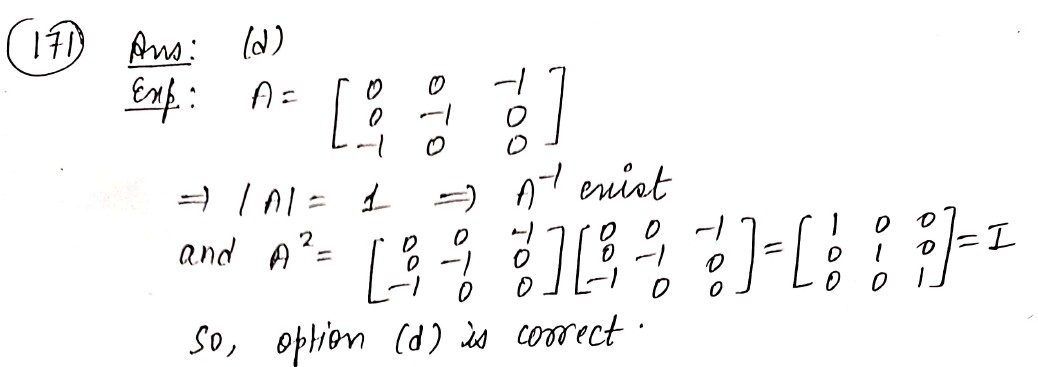 (171) Ans: (d)
Exp: A = [ 0 0 -1
0 -1 0
-1 0 0 ]
⇒ |A| = 1 ⇒ A⁻¹ exist
and A² = [ 0 0 -1 ; 0 -1 0 ; -1 0 0 ] [ 0 0 -1 ; 0 -1 0 ; -1 0 0 ] = [ 1 0 0 ; 0 1 0 ; 0 0 1 ] = I
So, option (d) is correct.